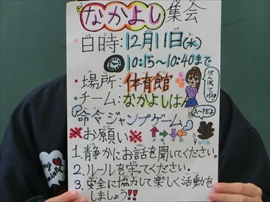 なかよし集会
日時:12月11日(水)
10:15~10:40まで
・場所:体育館
・チーム:なかよしはん
命令ジャンプゲーム
※お願い※
1.静かにお話を聞いてください。
2.ルールを守てください。
3.安全に協力して楽しく活動を
しましょう!!